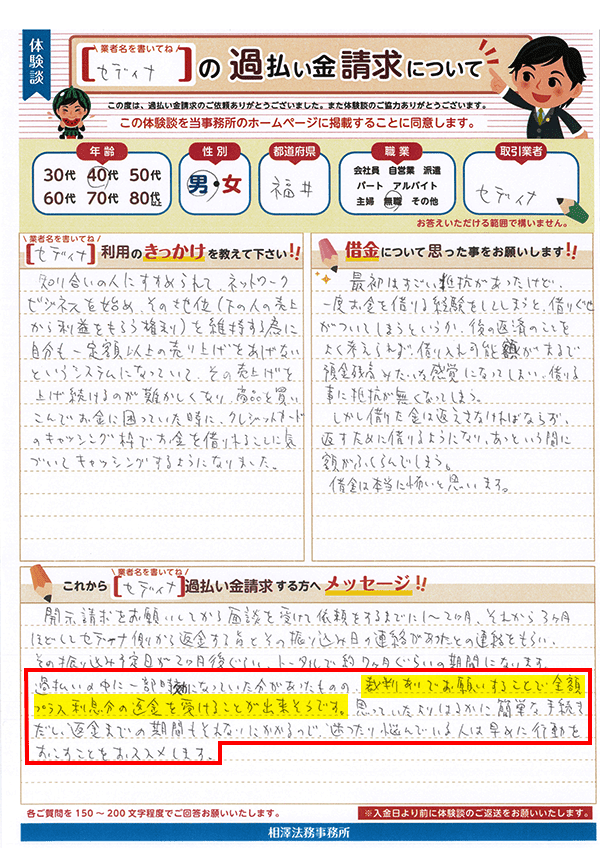 体験談
業者名を書いてね
[セディナ]の過払い金請求について
この度は、過払い金請求のご依頼ありがとうございました。また体験談のご協力ありがとうございます。
この体験談を当事務所のホームページに掲載することに同意します。
年齢
30代 40代 50代
60代 70代 80代以上
性別
男・女
都道府県
福井
職業
会社員 自営業 派遣
パート アルバイト
主婦 無職 その他
取引業者
セディナ
お答えいただける範囲で構いません。
業者名を書いてね
[セディナ]利用のきっかけを教えて下さい!!
知り合いの人にすすめられて、ネットワーク
ビジネスを始め、その地位(下の人の売上
から利益をもらう権利)を維持する為に
自分も一定額以上の売り上げをあげない
というシステムになっていて、その売上げを
上げ続けるのが難かしくなり、商品を買い
こんでお金に困っていた時に、クレジットカード
のキャッシング枠でお金を借りれることに気
づいてキャッシングするようになりました。
借金について思った事をお願いします!!
最初はすごい抵抗があったけど、
一度お金を借りる経験をしてしまうと、借りぐせ
がついてしまうというか、後の返済のことを
よく考えられず、借り入れ可能額がまるで
預金残高みたいな感覚になってしまい、借りる
事に抵抗が無くなってしまう。
しかし借りた金は返えさなければならず、
返すために借りるようになり、あっという間に
額がふくらんでしまう。
借金は本当に怖いと思います。
業者名を書いてね
これから[セディナ]過払い金請求する方へメッセージ!!
開示請求をお願いしてから面談を受けて依頼をするまでに1〜2ヶ月、それから3ヶ月
ほどしてセディナ側から返金する旨とその振り込み日の連絡があったとの連絡をもらい、
その振り込み予定日が2ヶ月後ぐらい、トータルで約7ヶ月ぐらいの期間になります。
過払いの中に一部時効になっていた分があったものの、裁判ありでお願いすることで全額
プラス利息分の返金を受けることが出来そうです。思っていたよりはるかに簡単な手続き
だし、返金までの期間もそれないにかかるので、迷ったり悩んでいる人は早めに行動を
おこすことをおススメします。
各ご質問を150〜200文字程度でご回答お願いいたします。
※入金日より前に体験談のご返送をお願いいたします。
相澤法務事務所